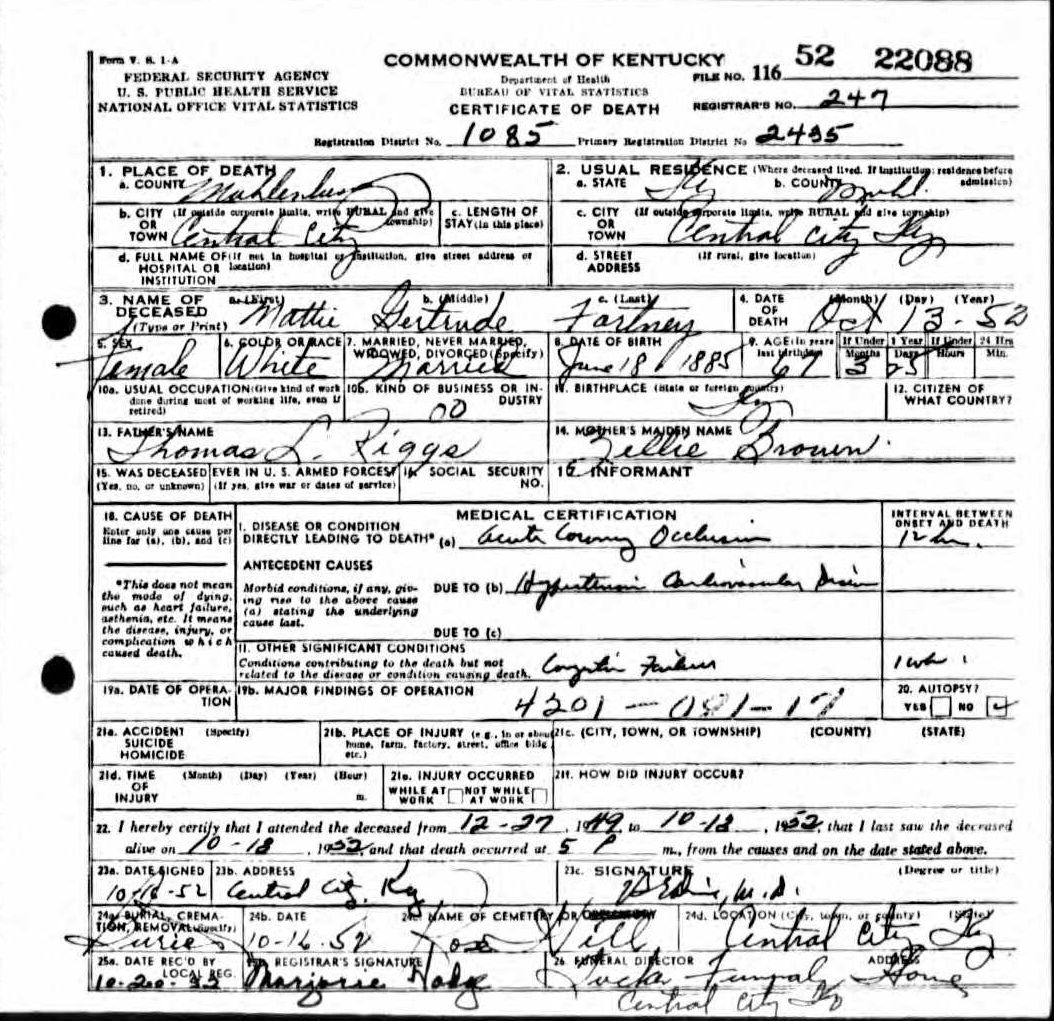 Form V. S. 1-A
FEDERAL SECURITY AGENCY
U. S. PUBLIC HEALTH SERVICE
NATIONAL OFFICE VITAL STATISTICS
COMMONWEALTH OF KENTUCKY
Department of Health
BUREAU OF VITAL STATISTICS
CERTIFICATE OF DEATH
FILE NO. 116 52 22088
REGISTRAR'S NO. 247
Registration District No. 1085 Primary Registration District No 2435
1. PLACE OF DEATH
a. COUNTY Muhlenburg
b. CITY (If outside corporate limits, write RURAL and give township)
OR
TOWN Central City
c. LENGTH OF STAY (in this place)
d. FULL NAME OF (If not in hospital or institution, give street address or location)
HOSPITAL OR
INSTITUTION
2. USUAL RESIDENCE (Where deceased lived. If institution: residence before admission)
a. STATE Ky b. COUNTY Muhl.
c. CITY (If outside corporate limits, write RURAL and give township)
OR
TOWN Central City Ky
d. STREET ADDRESS (If rural, give location)
3. NAME OF DECEASED (Type or Print)
a. (First) b. (Middle) c. (Last)
Mattie Gertrude Fortney
4. DATE OF DEATH (Month) (Day) (Year)
Oct 13-52
5. SEX Female
6. COLOR OR RACE White
7. MARRIED, NEVER MARRIED, WIDOWED, DIVORCED (Specify) Married
8. DATE OF BIRTH June 18 1885
9. AGE (In years last birthday) 67
If Under 1 Year Months 3 Days 25
If Under 24 Hrs Hours Min.
10a. USUAL OCCUPATION (Give kind of work done during most of working life, even if retired)
10b. KIND OF BUSINESS OR INDUSTRY 00
11. BIRTHPLACE (State or foreign country) Ky
12. CITIZEN OF WHAT COUNTRY?
13. FATHER'S NAME Thomas L. Riggs
14. MOTHER'S MAIDEN NAME Zellie Brown.
15. WAS DECEASED EVER IN U. S. ARMED FORCES?
(Yes, no, or unknown) (If yes, give war or dates of service)
16. SOCIAL SECURITY NO.
17. INFORMANT
18. CAUSE OF DEATH
Enter only one cause per line for (a), (b), and (c)
*This does not mean the mode of dying, such as heart failure, asthenia, etc. It means the disease, injury, or complication which caused death.
MEDICAL CERTIFICATION
I. DISEASE OR CONDITION
DIRECTLY LEADING TO DEATH* (a) Acute Coronary Occlusion
INTERVAL BETWEEN ONSET AND DEATH
12 hr.
ANTECEDENT CAUSES
Morbid conditions, if any, giving rise to the above cause (a) stating the underlying cause last.
DUE TO (b) Hypertensive Cardiovascular Disease
DUE TO (c)
II. OTHER SIGNIFICANT CONDITIONS
Conditions contributing to the death but not related to the disease or condition causing death.
Congestive Failure 1 wk.
19a. DATE OF OPERATION
19b. MAJOR FINDINGS OF OPERATION
4201-081-17
20. AUTOPSY?
YES NO
21a. ACCIDENT (Specify)
SUICIDE
HOMICIDE
21b. PLACE OF INJURY (e.g., in or about home, farm, factory, street, office bldg. etc.)
21c. (CITY, TOWN, OR TOWNSHIP) (COUNTY) (STATE)
21d. TIME OF INJURY (Month) (Day) (Year) (Hour) m.
21e. INJURY OCCURRED
WHILE AT WORK NOT WHILE AT WORK
21f. HOW DID INJURY OCCUR?
22. I hereby certify that I attended the deceased from 12-27, 1949, to 10-13, 1952, that I last saw the deceased
alive on 10-13, 1952, and that death occurred at 5 P m., from the causes and on the date stated above.
23a. DATE SIGNED 10-16-52
23b. ADDRESS Central City, Ky
23c. SIGNATURE (Degree or title)
M.D.
24a. BURIAL, CREMATION, REMOVAL (Specify) Buried
24b. DATE 10-16-52
24c. NAME OF CEMETERY OR CREMATORY Rose Hill
24d. LOCATION (City, town, or county) (State)
Central City Ky
25a. DATE REC'D BY LOCAL REG. 10-20-52
25b. REGISTRAR'S SIGNATURE Marjorie Hodge
26. FUNERAL DIRECTOR ADDRESS
Tucker Funeral Home
Central City Ky